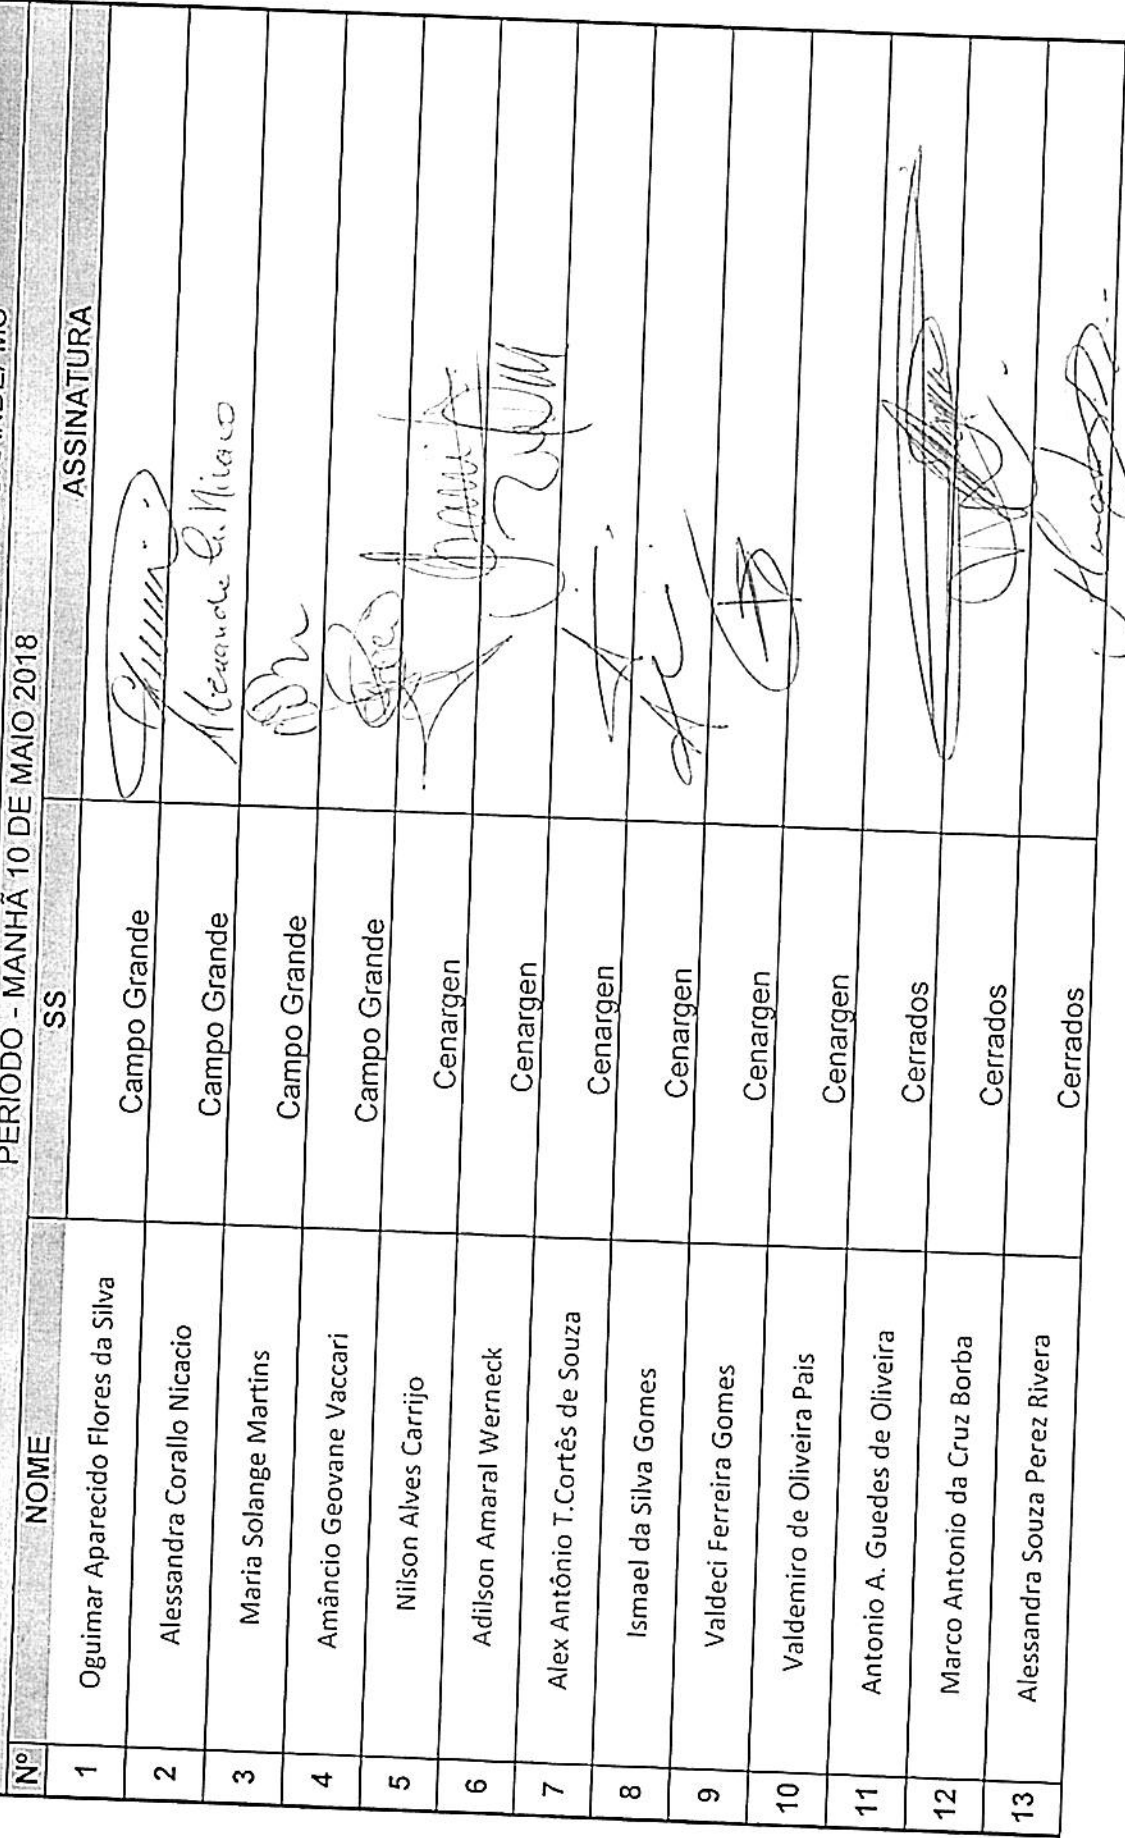 PERÍODO - MANHÃ 10 DE MAIO 2018
Nº NOME SS ASSINATURA
1 Oguimar Aparecido Flores da Silva Campo Grande
2 Alessandra Corallo Nicacio Campo Grande
3 Maria Solange Martins Campo Grande
4 Amâncio Geovane Vaccari Campo Grande
5 Nilson Alves Carrijo Cenargen
6 Adilson Amaral Werneck Cenargen
7 Alex Antônio T.Cortês de Souza Cenargen
8 Ismael da Silva Gomes Cenargen
9 Valdeci Ferreira Gomes Cenargen
10 Valdemiro de Oliveira Pais Cenargen
11 Antonio A. Guedes de Oliveira Cerrados
12 Marco Antonio da Cruz Borba Cerrados
13 Alessandra Souza Perez Rivera Cerrados